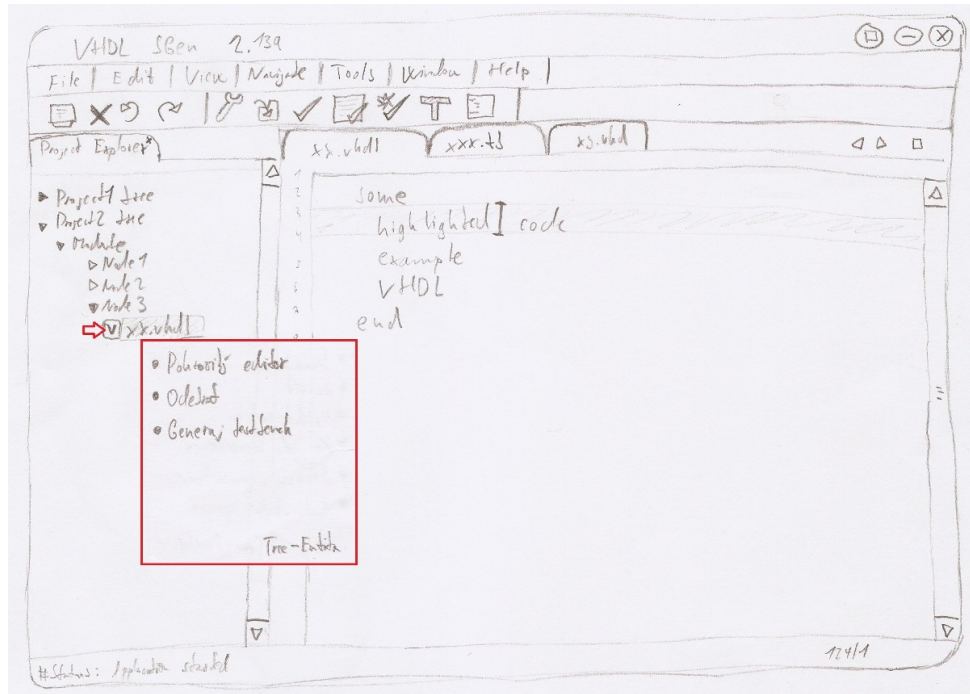 VHDL SGen 2.13a
File | Edit | View | Navigate | Tools | Window | Help |
Project Explorer*
xx.vhdl
xxx.ts
xs.vhd
Project1 tree
Project2 tree
Module
Node 1
Node 2
Node 3
V xx.vhdl
Pokročilý editor
Odebrat
Generuj testbench
Tree-Entita
1
2
3
4
some
highlighted code
example
VHDL
end
#Status: Application started
124/1